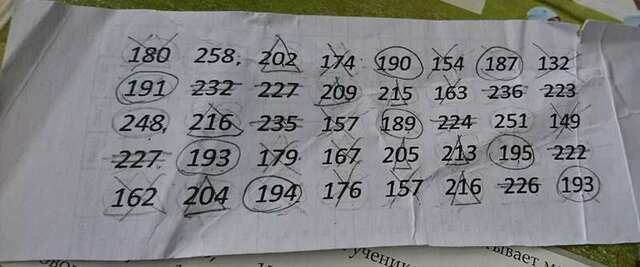 180 258, 202 174 190 154 187 132
191 232 227 209 215 163 236 223
248, 216 235 157 189 224 251 149
227 193 179 167 205 213 195 222
162 204 194 176 157 216 226 193
ученик